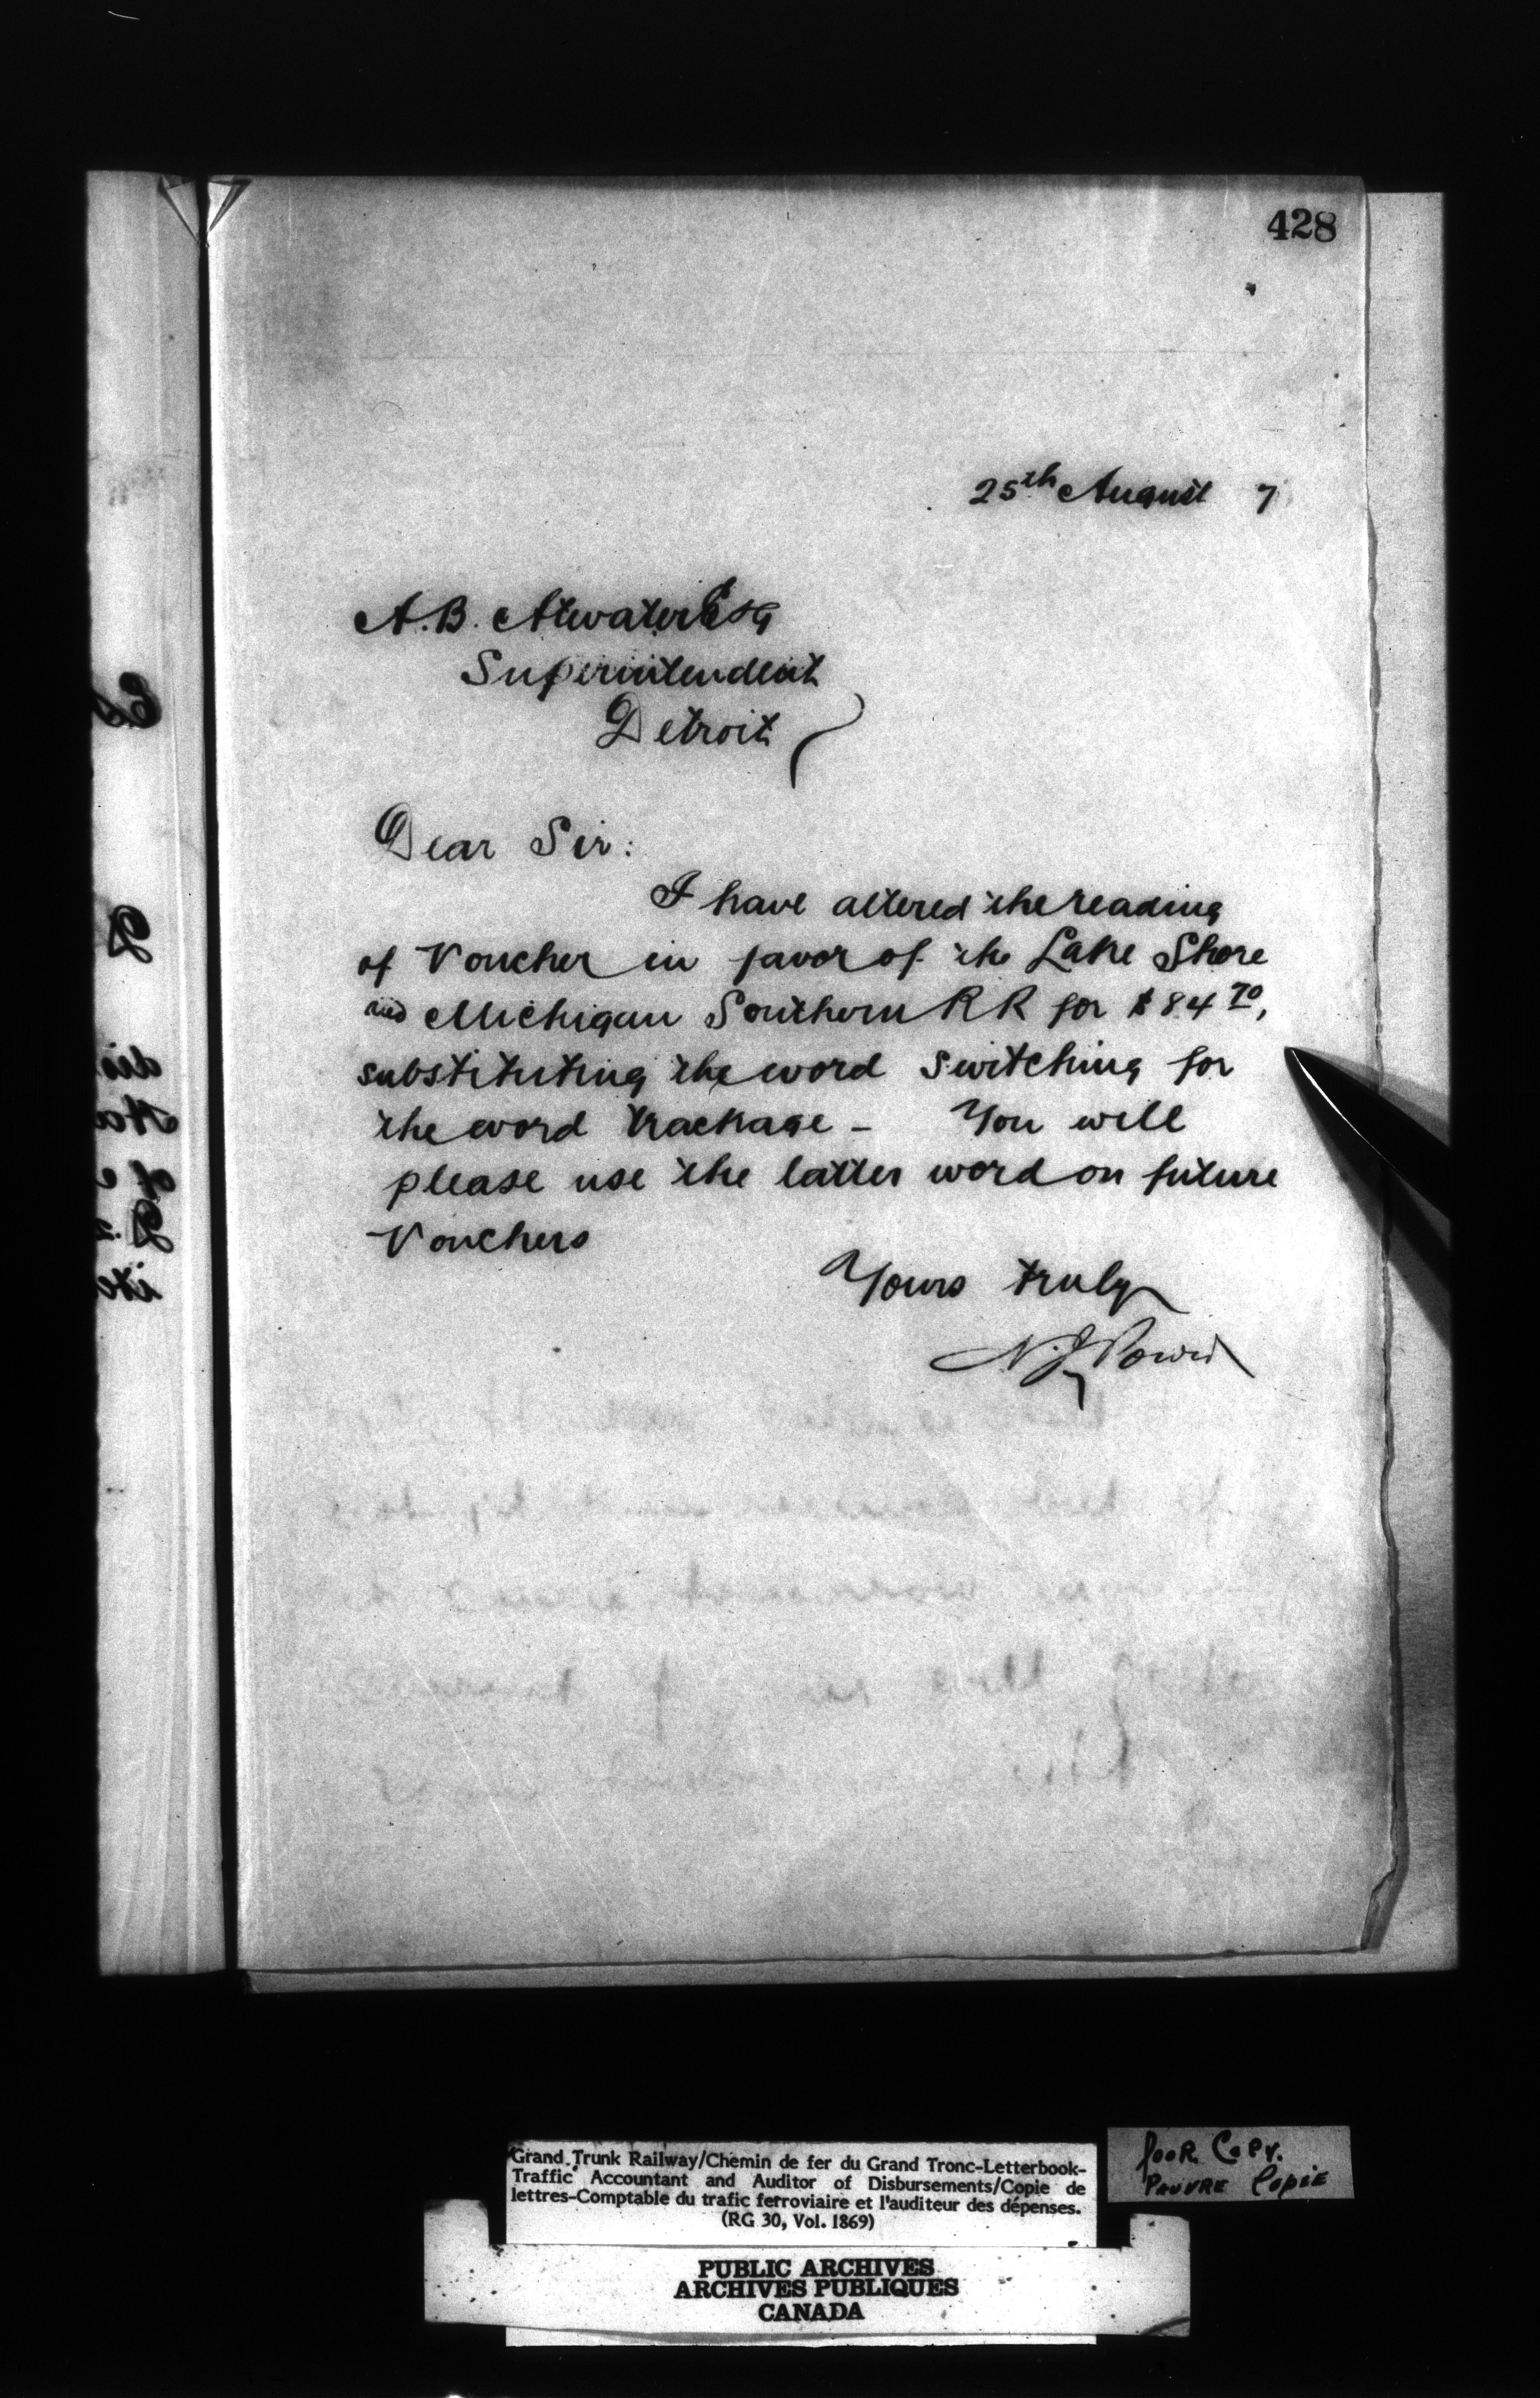 428
25th August 7
A.B. Atwater Esq
Superintendent
Detroit
Dear Sir:
I have altered the reading
of Voucher in favor of the Lake Shore
and Michigan Southern RR for $84 70,
substituting the word switching for
the word trackage - You will
please use the latter word on future
Vouchers
Yours truly
N.J. Power
Grand Trunk Railway/Chemin de fer du Grand Tronc-Letterbook-
Traffic Accountant and Auditor of Disbursements/Copie de
lettres-Comptable du trafic ferroviaire et l'auditeur des dépenses.
(RG 30, Vol. 1869)
POOR COPY.
PAUVRE COPIE
PUBLIC ARCHIVES
ARCHIVES PUBLIQUES
CANADA